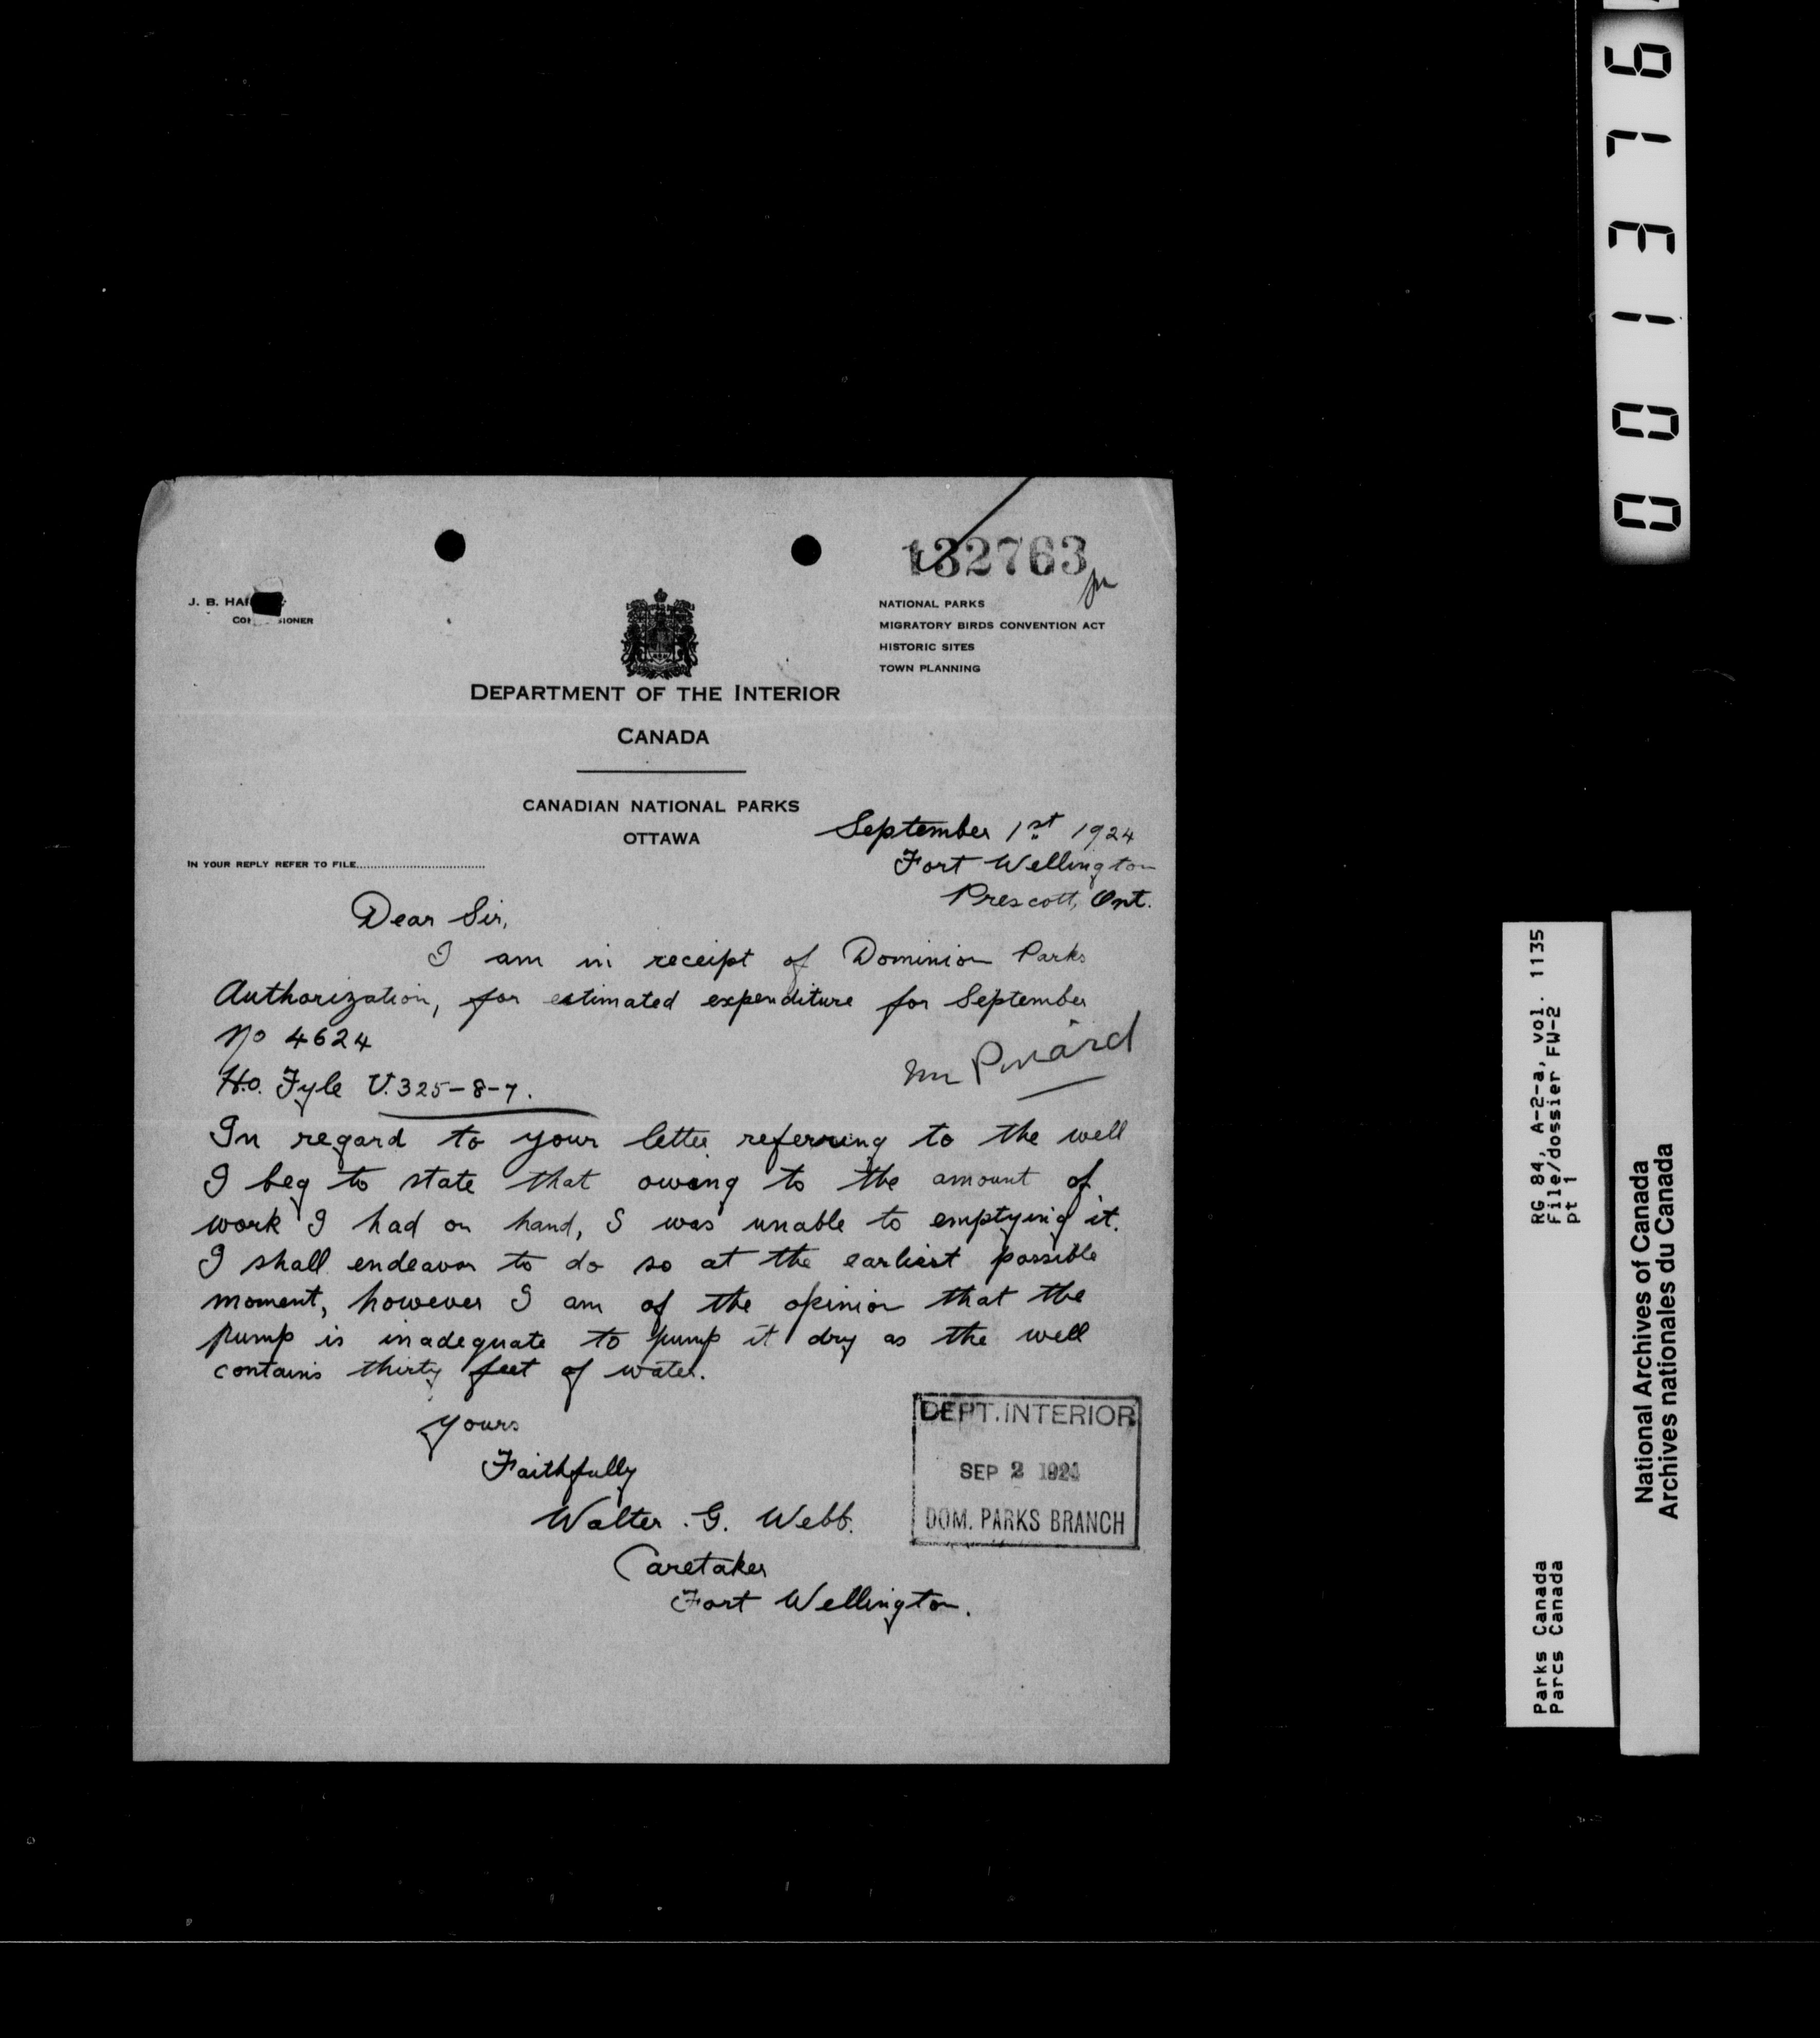 001376
132763
J. B. HAR
COMMISSIONER
NATIONAL PARKS
MIGRATORY BIRDS CONVENTION ACT
HISTORIC SITES
TOWN PLANNING
DEPARTMENT OF THE INTERIOR
CANADA
CANADIAN NATIONAL PARKS
OTTAWA
IN YOUR REPLY REFER TO FILE
September 1st 1924
Fort Wellington
Prescott, Ont.
Dear Sir,
I am in receipt of Dominion Parks
Authorization, for estimated expenditure for September
No 4624
H.O. Fyle U.325-8-7.
In regard to your letter referring to the well
I beg to state that owing to the amount of
work I had on hand, I was unable to emptying it.
I shall endeavor to do so at the earliest possible
moment, however I am of the opinion that the
pump is inadequate to pump it dry as the well
contains thirty feet of water.
Yours
Faithfully
Walter. G. Webb.
Caretaker
Fort Wellington.
DEPT. INTERIOR
SEP 2 1924
DOM. PARKS BRANCH
RG 84, A-2-a, vol. 1135
File/dossier FW-2
pt 1
Parks Canada
Parcs Canada
National Archives of Canada
Archives nationales du Canada